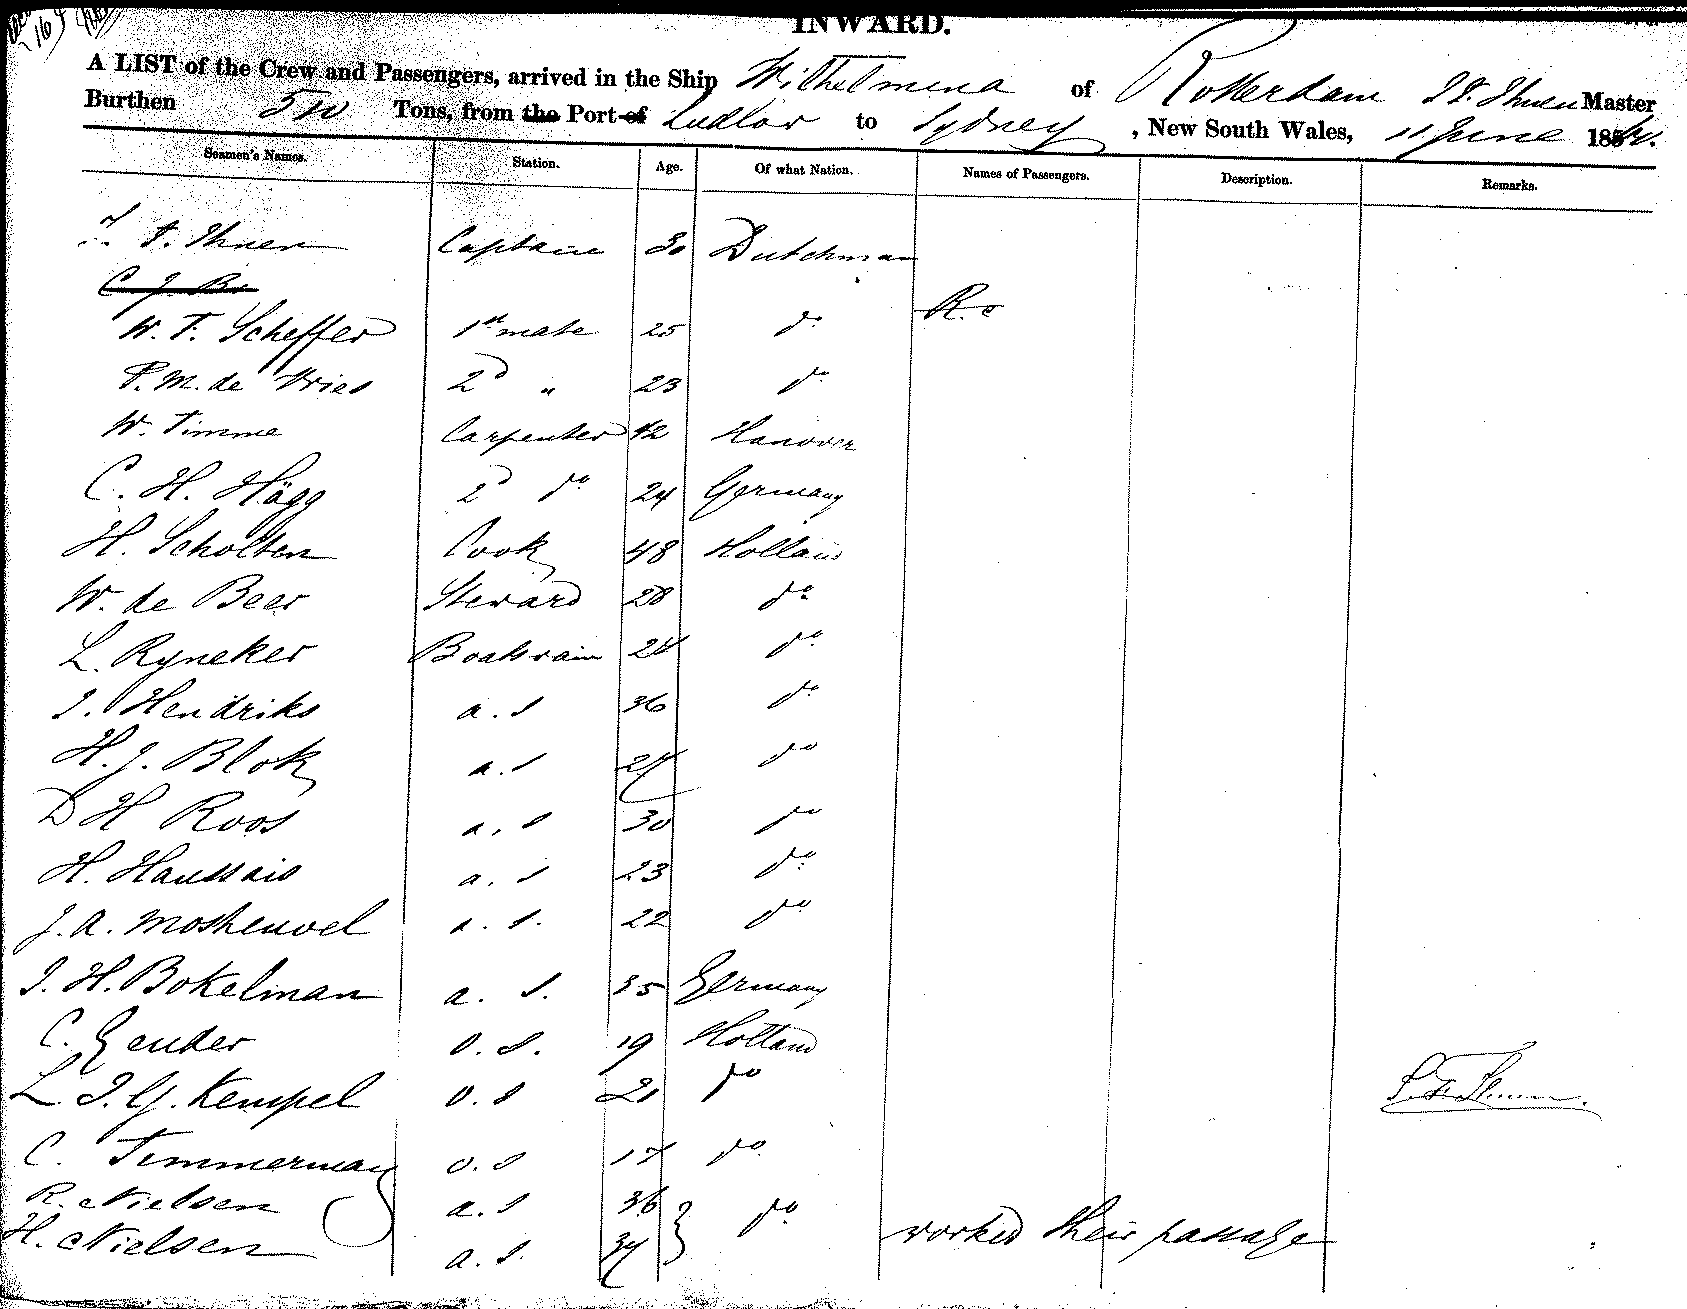 INWARD.
A LIST of the Crew and Passengers, arrived in the Ship Wilhelmina of Rotterdam Master
Burthen Tons, from the Port of to Sydney, New South Wales, 11 June 18
Seamen's Names. Station. Age. Of what Nation. Names of Passengers. Description. Remarks.
Captain 30 Dutchman
W. F. Scheffer 1st mate 25 do
P. M. de Vries 2d " 23 do
W. Timme Carpenter 42 Hanover
C. H. Hägg 2d do 24 Germany
H. Scholten Cook 48 Holland
W. de Beer Steward 28 do
L. Ryneker Boatswain do
J. Hendriks a. s 36 do
H. J. Blok a. s do
D H Roos a. s 30 do
H. a. s 23 do
J. A. Moskeuvel a. s. 22 do
J. H. Bokelman a. s. 35 Germany
C. o. s. 19 Holland
L. J. G. Kempel o. s 21 do
C. Timmerman o. s 17 do
R. Nielsen a. s 36
H. Nielsen a. s. 34 do worked their passage